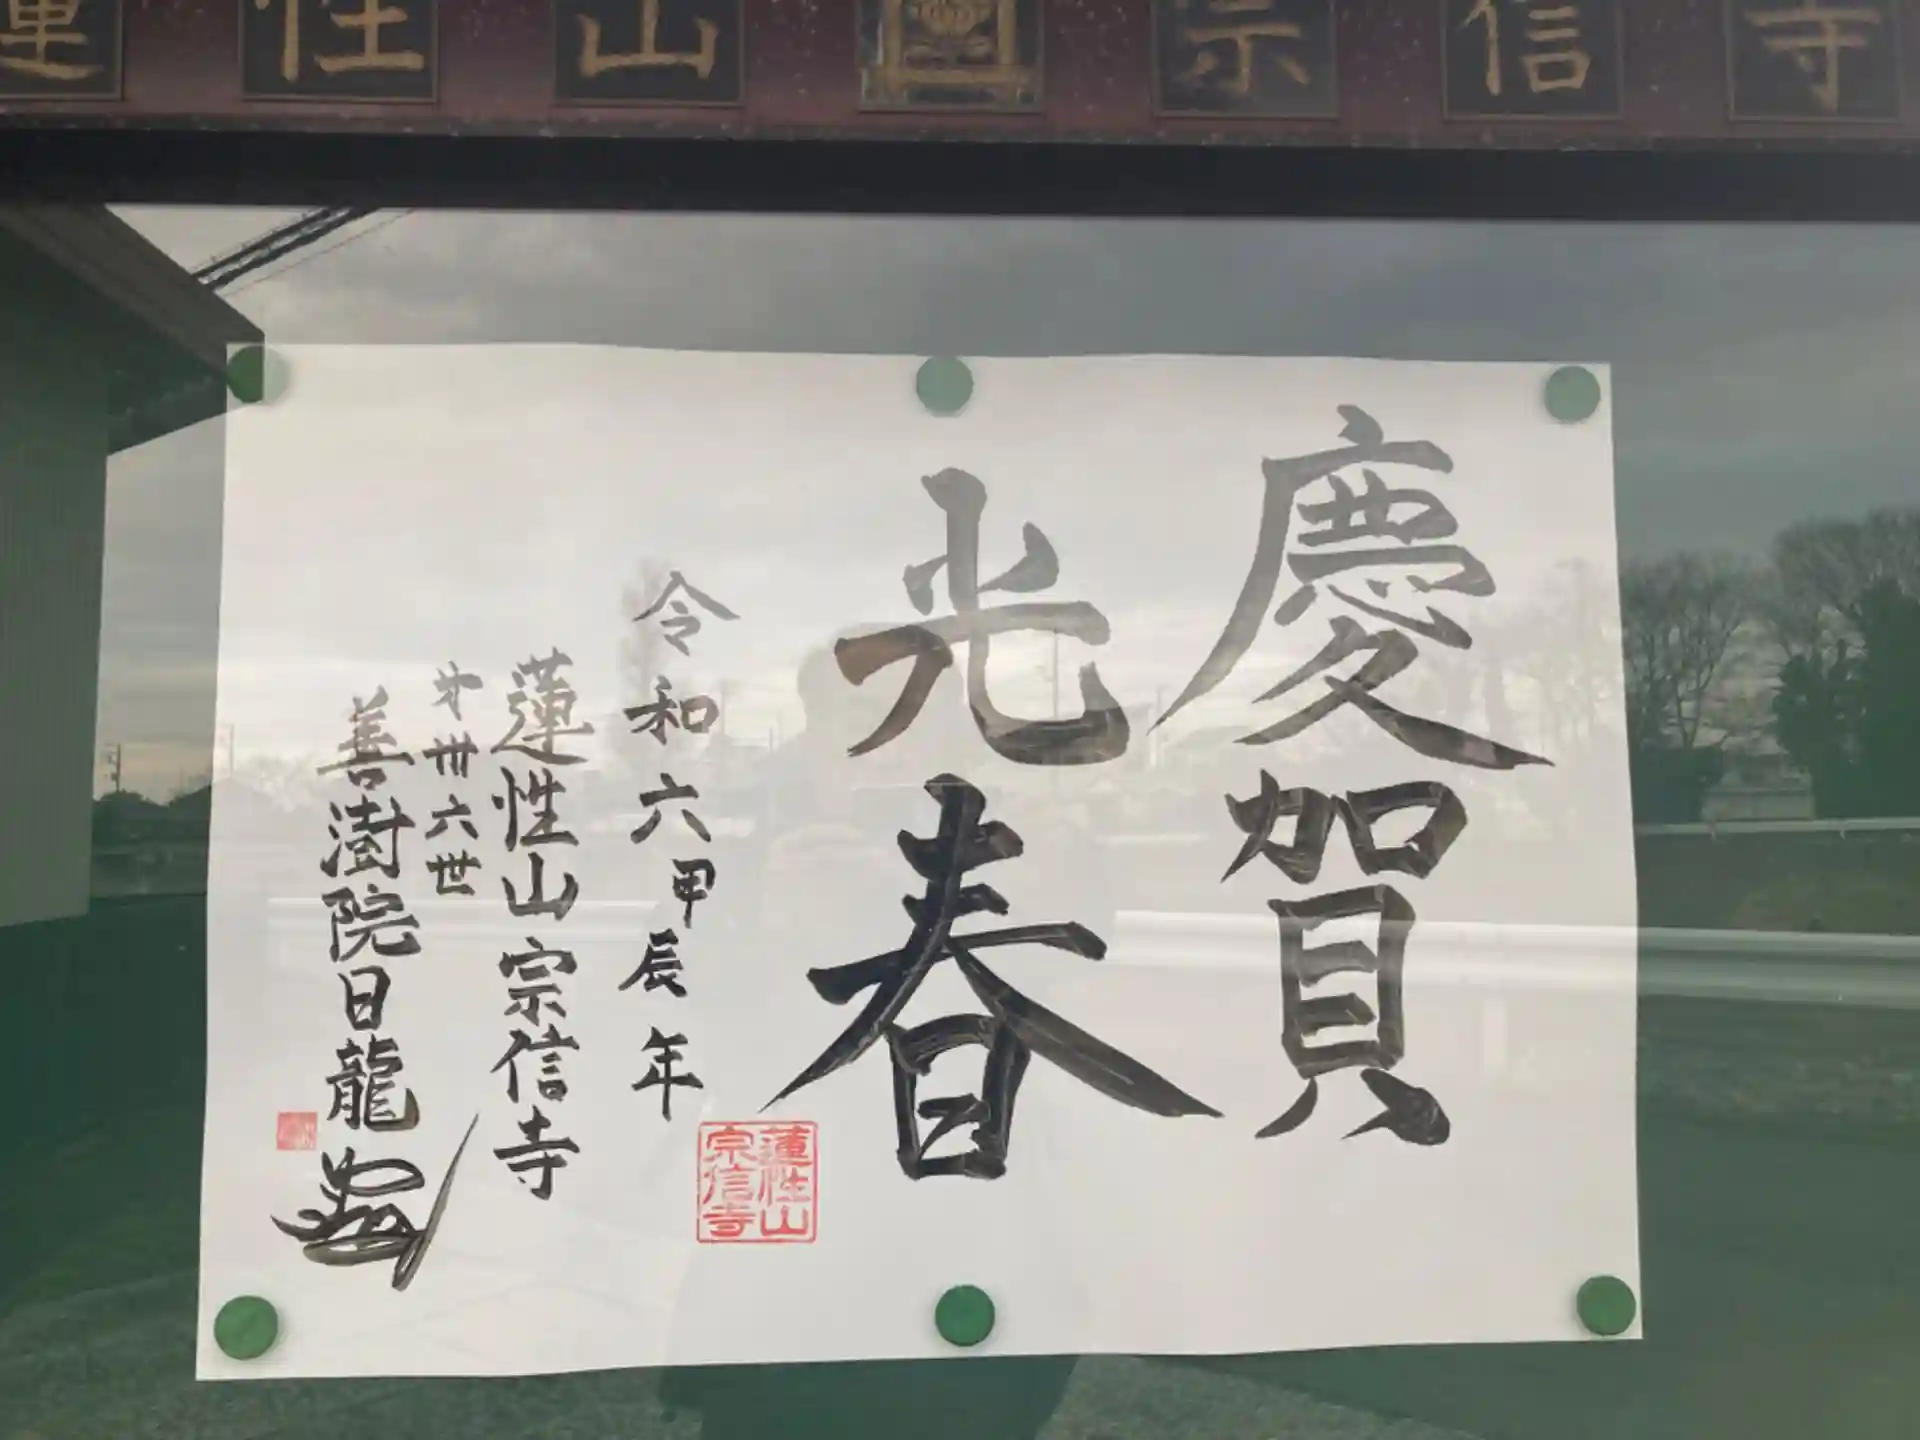 蓮性山宗信寺
慶賀
光春
令和六甲辰年
蓮性山宗信寺
㐧卅六世
善澍院日龍
蓮性山
宗信寺